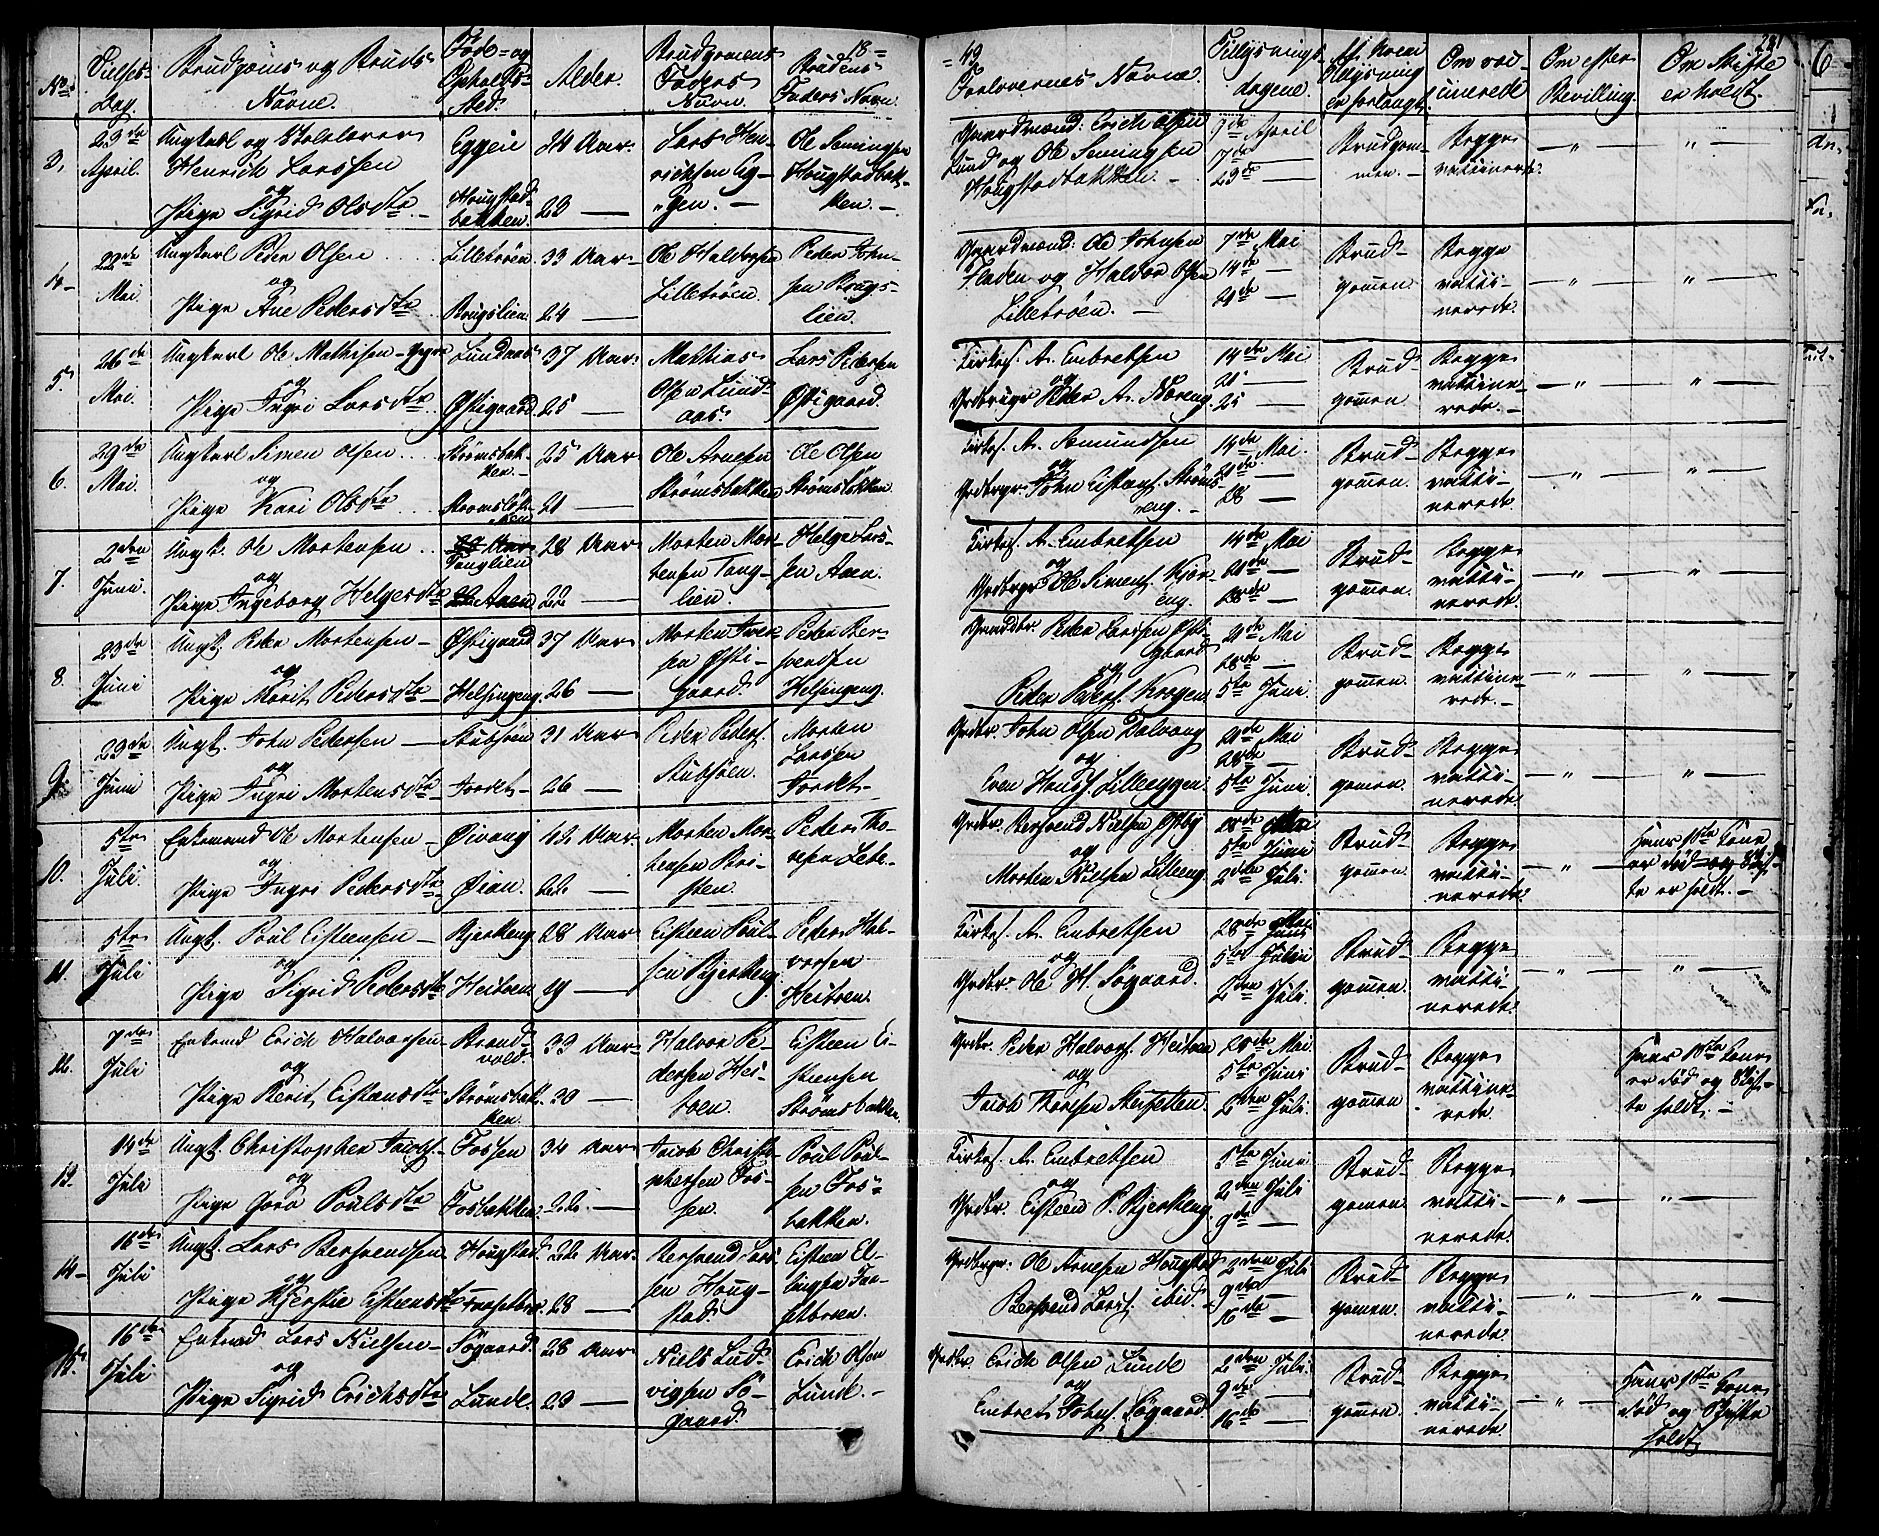 18=
=49
281
No
Vielses-
Dag.
Brudgoms og Bruds
Navne.
Føde= og
Opholds-
Sted.
Alder.
Brudgomens
Faders
Navn.
Brudens
Faders Navn.
Forlovernes Navne.
Tillysnings-
dagene.
Af hvem
Oplysning
er forlangt.
Om vac-
cinerede
Om efter
Bevilling.
Om Skifte
er holdt.
3.
23de
April.
Ungkarl og
Henrich Larssen
og
Pige Sigrid Olsdtr
Eggen
Hougstad-
bakken.
24 Aar.
23 —
Lars Hen-
richsen Eg-
gen.
Ole Semingsen
Hougstadbak-
ken.
Gaardmænd: Erich Olsen
Lund og Ole Semingsen
Hougstadbakken.
9de April
17de —
23de —
Brudgom-
men.
Begge
vaccinerede.
4.
22de
Mai.
Ungkarl Peder Olsen
og
Pige Ane Pedersdtr
Lilletrøen.
Brugslien.
33 Aar
24 —
Ole Haldorsen
Lilletrøen.
Peder John-
sen Brugs-
lien.
Gaardmænd: Ole Johnsen
Fladen og Haldor Olsen
Lilletrøen.
7de Mai
14de —
21de —
Brud-
gomen.
Begge
vacci-
nerede.
5.
26de
Mai.
Ungkarl Ole Mathisen
og
Pige Ingri Larsdtr
Lundaas
Østigaard
37 Aar.
25 —
Mathias
Olsen Lund-
aas.
Lars Pedersen
Østigaard.
Kirkes. A. Embretsen
og
Grdbruger Peder A. Moreng
14de Mai
21 —
25 —
Brud-
gomen.
Begge
vaccine-
rede.
6.
29de
Mai.
Ungkarl Simen Olsen
og
Pige Kari Olsdtr
Strømsbak-
ken.
Strømsløk-
ken
25 Aar
21 —
Ole Arnesen
Strømsbakken
Ole Olsen
Strømsløkken.
Kirkes. A. Amundsen
og
Grdbrgr. John Eistens. Strøms-
eng.
14de Mai.
21de —
28 —
Brud-
gomen.
Begge
vacci-
nerede.
7.
2den
Juni.
Ungk. Ole Mortensen
og
Pige Ingeborg Helgesdtr
Tanglien
Aaen
28 Aar
22 —
Morten Mor-
tensen Tang-
lien.
Helge Lars-
sen Aaen.
Kirkes. A. Embretsen
og
Grdbrgr Ole Simens. Kjør-
eng.
14de Mai
21de —
28de —
Brud-
gomen.
Begge
vacci-
nerede.
8.
23de
Juni
Ungk. Peder Mortensen
og
Pige Marit Pedersdtr
Østigaard
Helsingeng.
37 Aar
26 —
Morten Iver-
sen Østi-
gaard.
Peder Ber-
svendsen
Helsingeng.
Grdbr. Peder Larssen Østi-
gaard
og
Peder Peders. Krogen
21de Mai
28de —
5te Juni.
Brud-
gomen.
Begge
vaccine-
rede.
9.
23de
Juni
Ungk. John Pedersen
og
Pige Ingri Mortensdtr
Stubsøen
Jordet
31 Aar
26 —
Peder Peders.
Stubsøen.
Morten
Larssen
Jordet
Grdbr. John Olsen Dalvang
og
Even Hanss. Lilleeggen.
21de Mai
28de —
5te Juni.
Brud-
gomen.
Begge
vacci-
nerede.
10.
5te
Juli.
Enkemand Ole Mortensen
og
Pige Ingri Pedersdtr
Øivang
Øian.
42 Aar.
22 —
Morten Mor-
tensen
Peder To-
resen
Grdbr. Bersvend Nielsen Østby
og
Morten Nielsen Lilleeng
28de Mai
5te Juni
2den Juli.
Brud-
gomen.
Begge
vacci-
nerede.
Hans 1ste Kone
er død og Skif-
te er holdt.
11.
5te
Juli
Ungk. Poul Eisteensen
og
Pige Sigrid Pedersdtr
Bjerkeng
Heitoen
28 Aar.
19 —
Eisteen Poul-
sen Bjerkeng.
Peder Hal-
vorsen
Heitoen.
Kirkes. A. Embretsen
og
Grdbr. Ole H. Søgaard.
28de Mai
5te Juni
2den Juli.
Brud-
gomen.
Begge
vacci-
nerede.
12.
7de
Juli
Enkemd Erich Halvorsen
og
Pige Berit Eistensdtr
Brand-
vold.
Strømsbak-
ken.
33 Aar.
30 —
Halvor Pe-
dersen Hei-
toen.
Eisteen Ei-
steensen
Strømsbakken.
Grdbr. Peder Halvors. Heitoen
og
Jacob Thoresen
28de Mai.
5te Juni
2den Juli.
Brud-
gomen.
Begge
vaccine-
rede.
Hans 1ste Kone
er død og Skif-
te holdt.
13.
14de
Juli
Ungk. Christopher Jacobs.
og
Pige Goro Poulsdtr
Fossen
Fosbakken.
34 Aar
22. —
Jacob Christo-
phersen Fos-
sen.
Poul Poul-
sen Fos-
bakken.
Kirkes. A. Embretsen
og
Grdbr. Eisteen P. Bjerkeng.
5te Juni
2den Juli
9de —
Brud-
gomen.
Begge
vacci-
nerede.
14
16de
Juli
Ungk. Lars Bersvendsen
og
Pige Kjerstie Eisteensdtr
Hougstad.
22 Aar.
28 —
Bersvend Lars-
sen Houg-
stad.
Eisteen El-
lingsen
Grdbrgr. Ole Arnesen Hougstad
Bersvend Larss. ibid.
2den Juli
9de —
16de —
Brud-
gomen.
Begge
vacci-
nerede.
15.
16de
Juli
Enkemd Lars Nielsen
og
Pige Sigrid Erichsdtr
Søgaard
Lunde.
28 Aar
23 —
Niels Lud-
vigsen Sø-
gaard.
Erich Olsen
Lunde.
Grdbr. Erich Olsen Lunde
og
Embret Johns. Søgaard
2den Juli.
9de —
16de —
Brud-
gomen.
Begge
vacci-
nerede.
Hans 1ste Kone
død og Skifte
holdt.